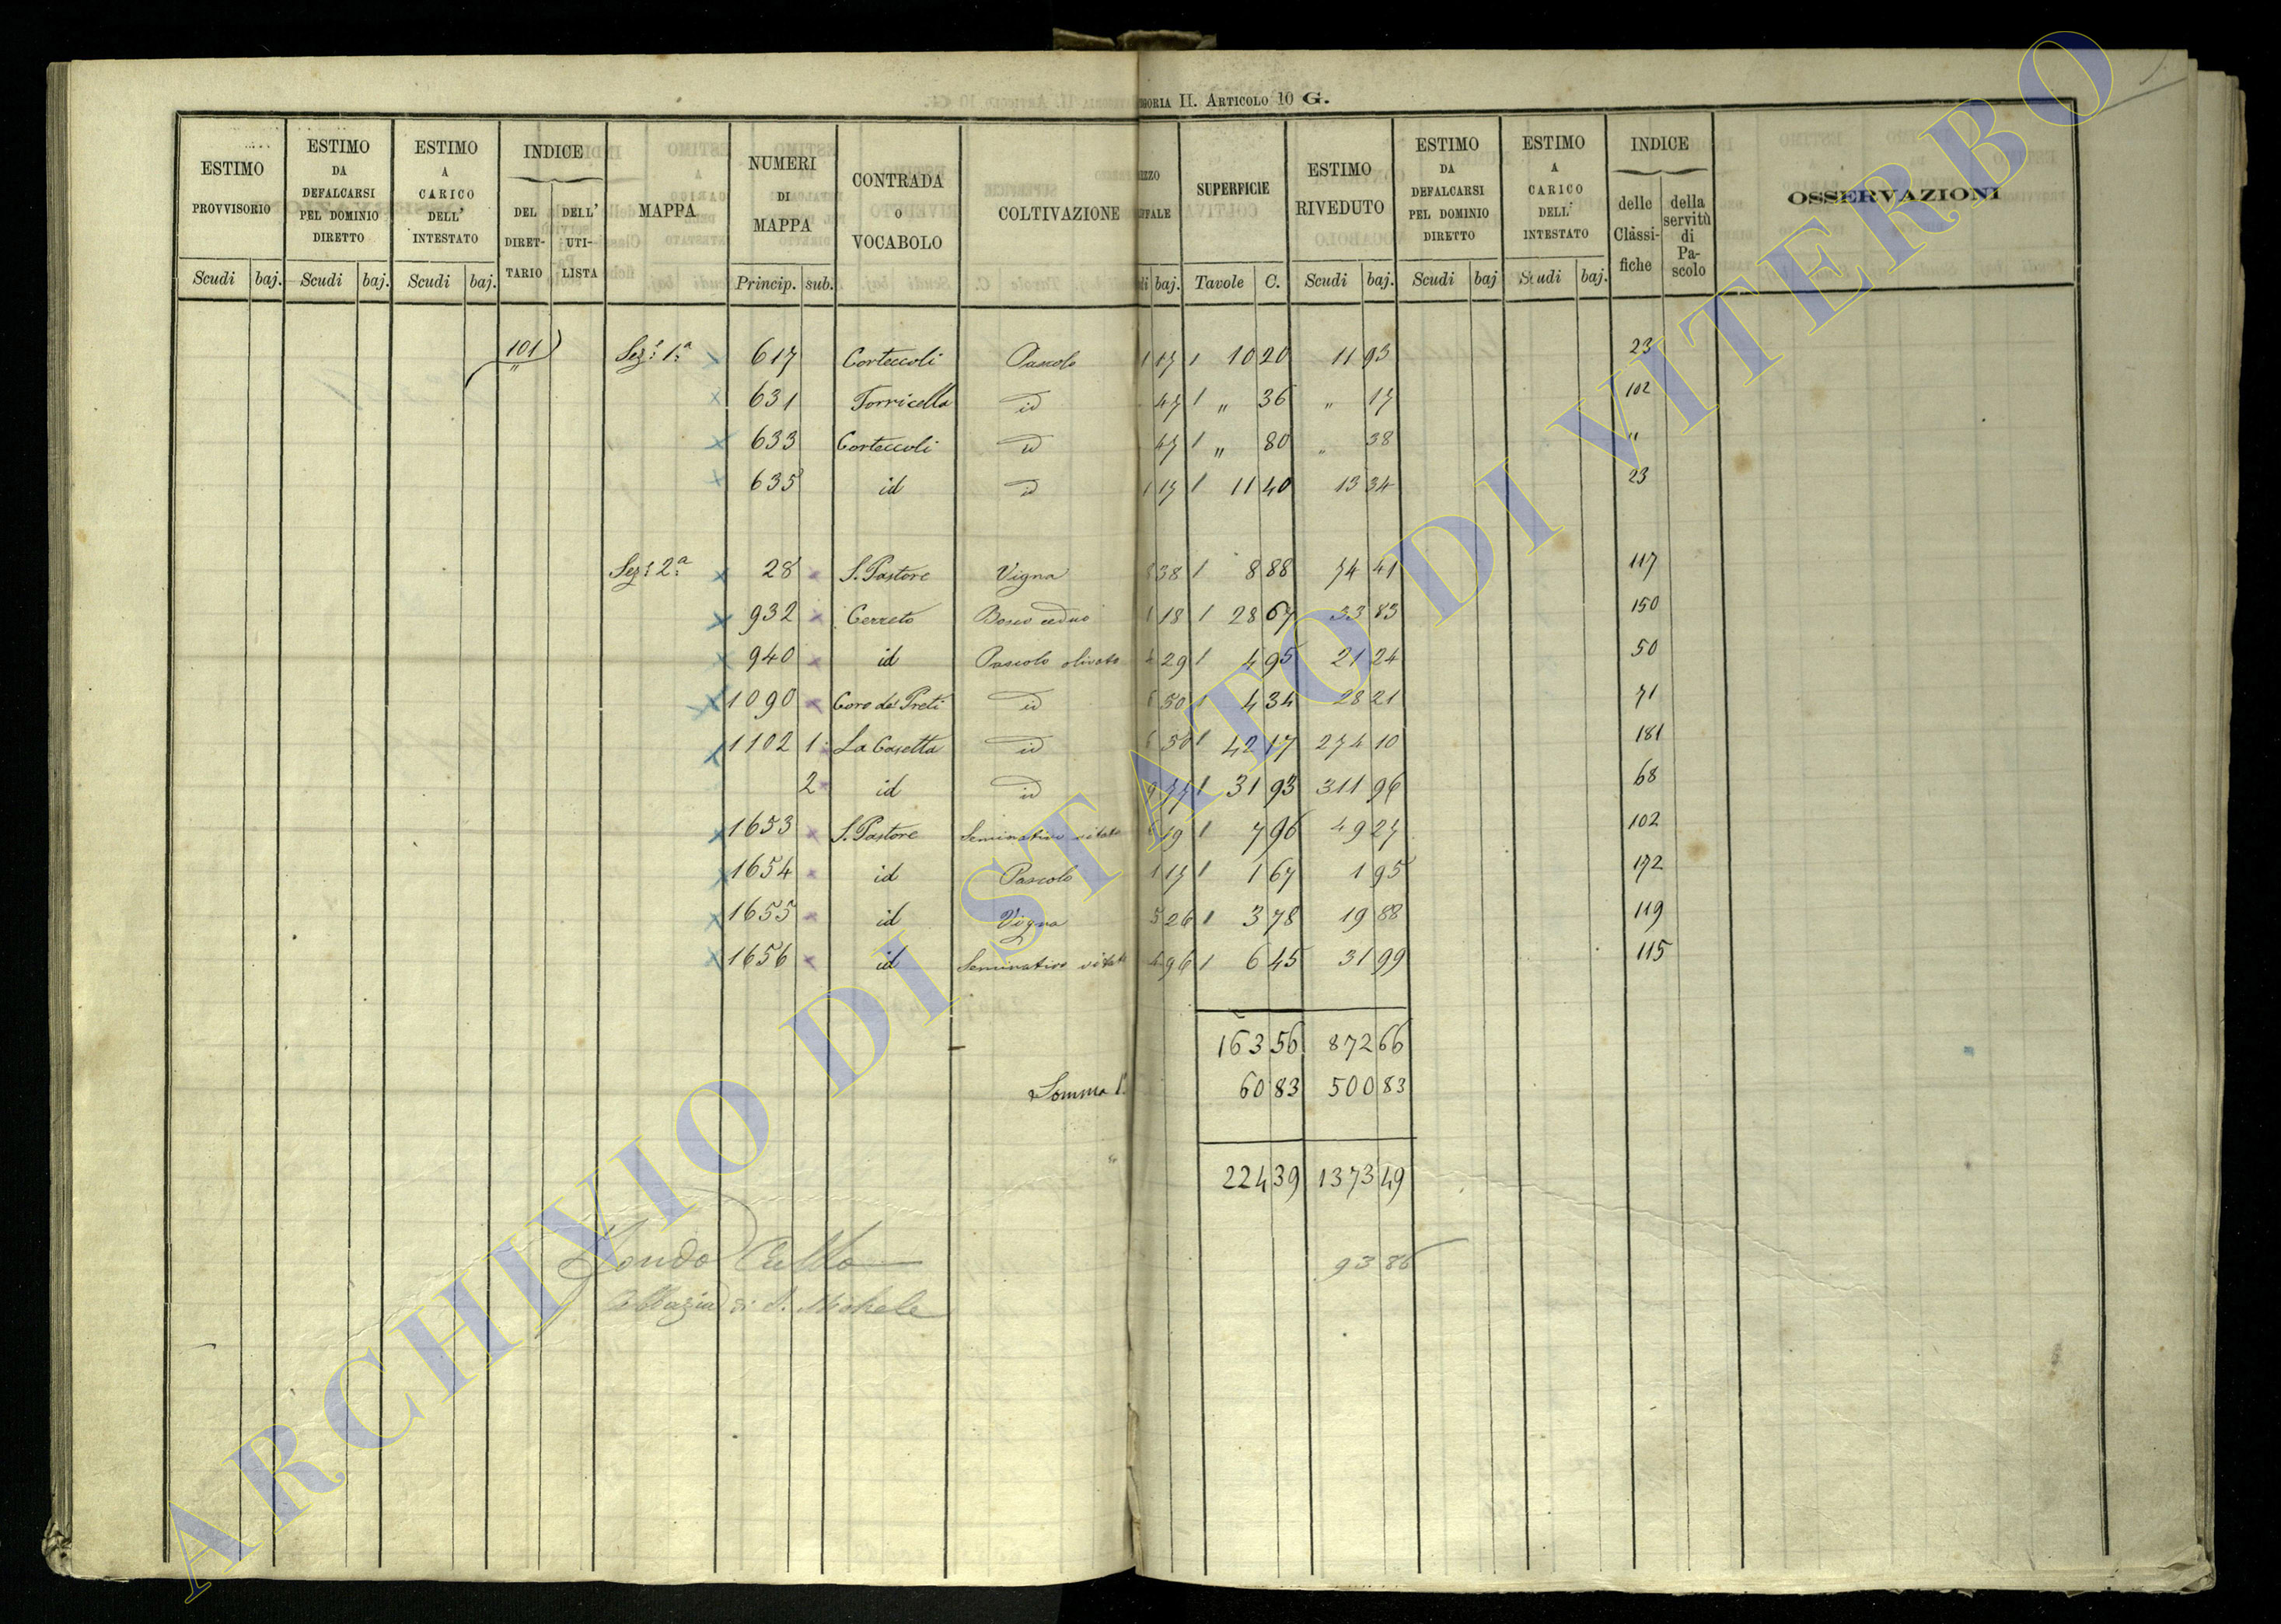 GORIA II. ARTICOLO 10 G.
ESTIMO PROVVISORIO | ESTIMO DA DEFALCARSI PEL DOMINIO DIRETTO | ESTIMO A CARICO DELL' INTESTATO | INDICE DEL DIRETTARIO | DELL' UTILISTA | MAPPA | NUMERI DI MAPPA | CONTRADA O VOCABOLO | COLTIVAZIONE | SUPERFICIE | ESTIMO RIVEDUTO | ESTIMO DA DEFALCARSI PEL DOMINIO DIRETTO | ESTIMO A CARICO DELL' INTESTATO | INDICE delle Classifiche | della servitù di Pascolo | OSSERVAZIONI
Scudi baj. | Scudi baj. | Scudi baj. | Princip. sub. | baj. | Tavole C. | Scudi baj. | Scudi baj | Scudi baj.
101 Sez.e 1.a 617 Corteccoli Pascolo 1 17 1 10 20 11 93 23
" 631 Torricella id 47 1 " 36 " 17 102
633 Corteccoli id 47 1 " 80 " 38 "
635 id id 1 17 1 11 40 13 34 23
Sez.e 2.a 28 S. Pastore Vigna 8 38 1 8 88 74 41 117
932 Cerreto Bosco ceduo 1 18 1 28 67 33 83 150
940 id Pascolo olivato 4 29 1 4 95 21 24 50
1090 Coro de' Preti id 6 50 1 4 34 28 21 71
1102 1 La Casetta id 6 50 1 42 17 274 10 181
2 id id 9 77 1 31 93 311 96 68
1653 S. Pastore Seminativo vitato 6 19 1 7 96 49 27 102
1654 id Pascolo 1 17 1 1 67 1 95 172
1655 id Vigna 5 26 1 3 78 19 88 119
1656 id Seminativo vitato 4 96 1 6 45 31 99 115
163 56 872 66
Somma 60 83 500 83
224 39 1373 49
Fondo Culto 93 86
Abbazia di S. Michele
ARCHIVIO DI STATO DI VITERBO